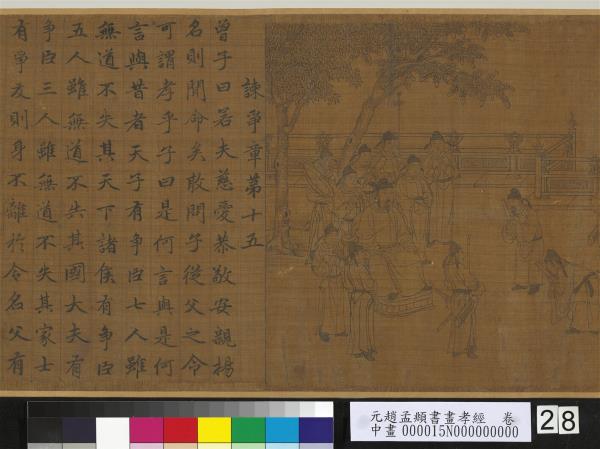 諫爭章第十五
曾子曰若夫慈愛恭敬安親揚
名則聞命矣敢問子從父之令
可謂孝乎子曰是何言與是何
言與昔者天子有爭臣七人雖
無道不失其天下諸侯有爭臣
五人雖無道不失其國大夫有
爭臣三人雖無道不失其家士
有爭友則身不離於令名父有
元趙孟頫書畫孝經 卷
中畫000015N000000000
28